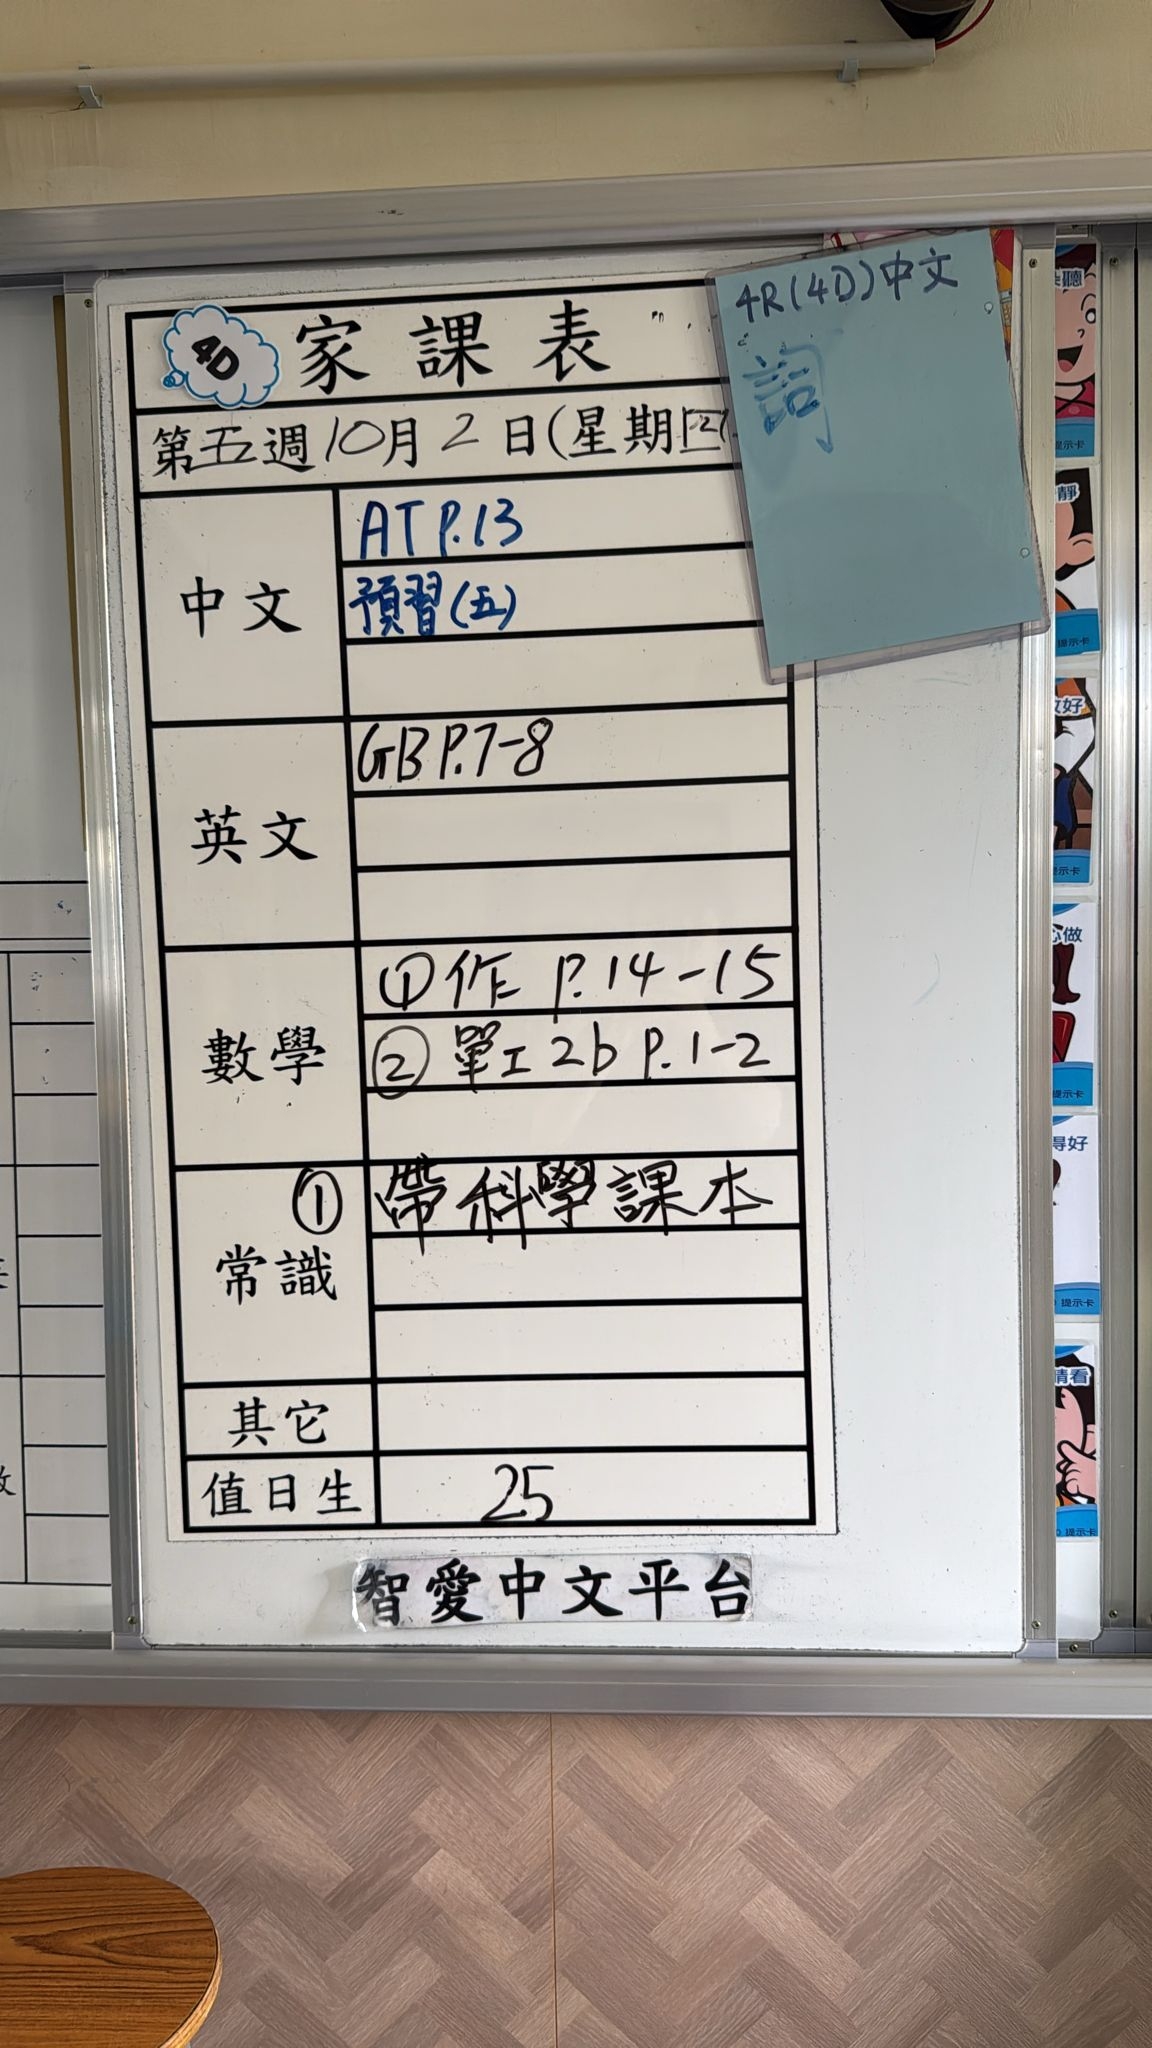 4D
家課表
第五週10月2日(星期四
4R(4D)中文
詞
中文
AT P.13
預習(五)
英文
GB P.7-8
數學
① 作 P.14-15
② 單工 2b P.1-2
常識
① 帶科學課本
其它
值日生
25
智愛中文平台
提示卡
提示卡
提示卡
提示卡
提示卡
提示卡